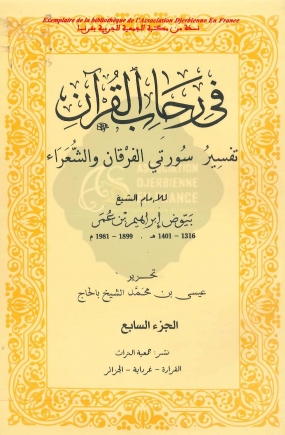 Exemplaire de la bibliothèque de l'Association Djerbienne En France
نسخة من مكتبة الجمعية الجربية بفرنسا
في رحاب القرآن
تفسير سورتي الفرقان والشعراء
للإمام الشيخ
بيوض إبراهيم بن عمر
1316 – 1401 هـ . 1899 – 1981 م
تحرير
عيسى بن محمد الشيخ بالحاج
الجزء السابع
نشر: جمعية التراث
القرارة - غرداية - الجزائر